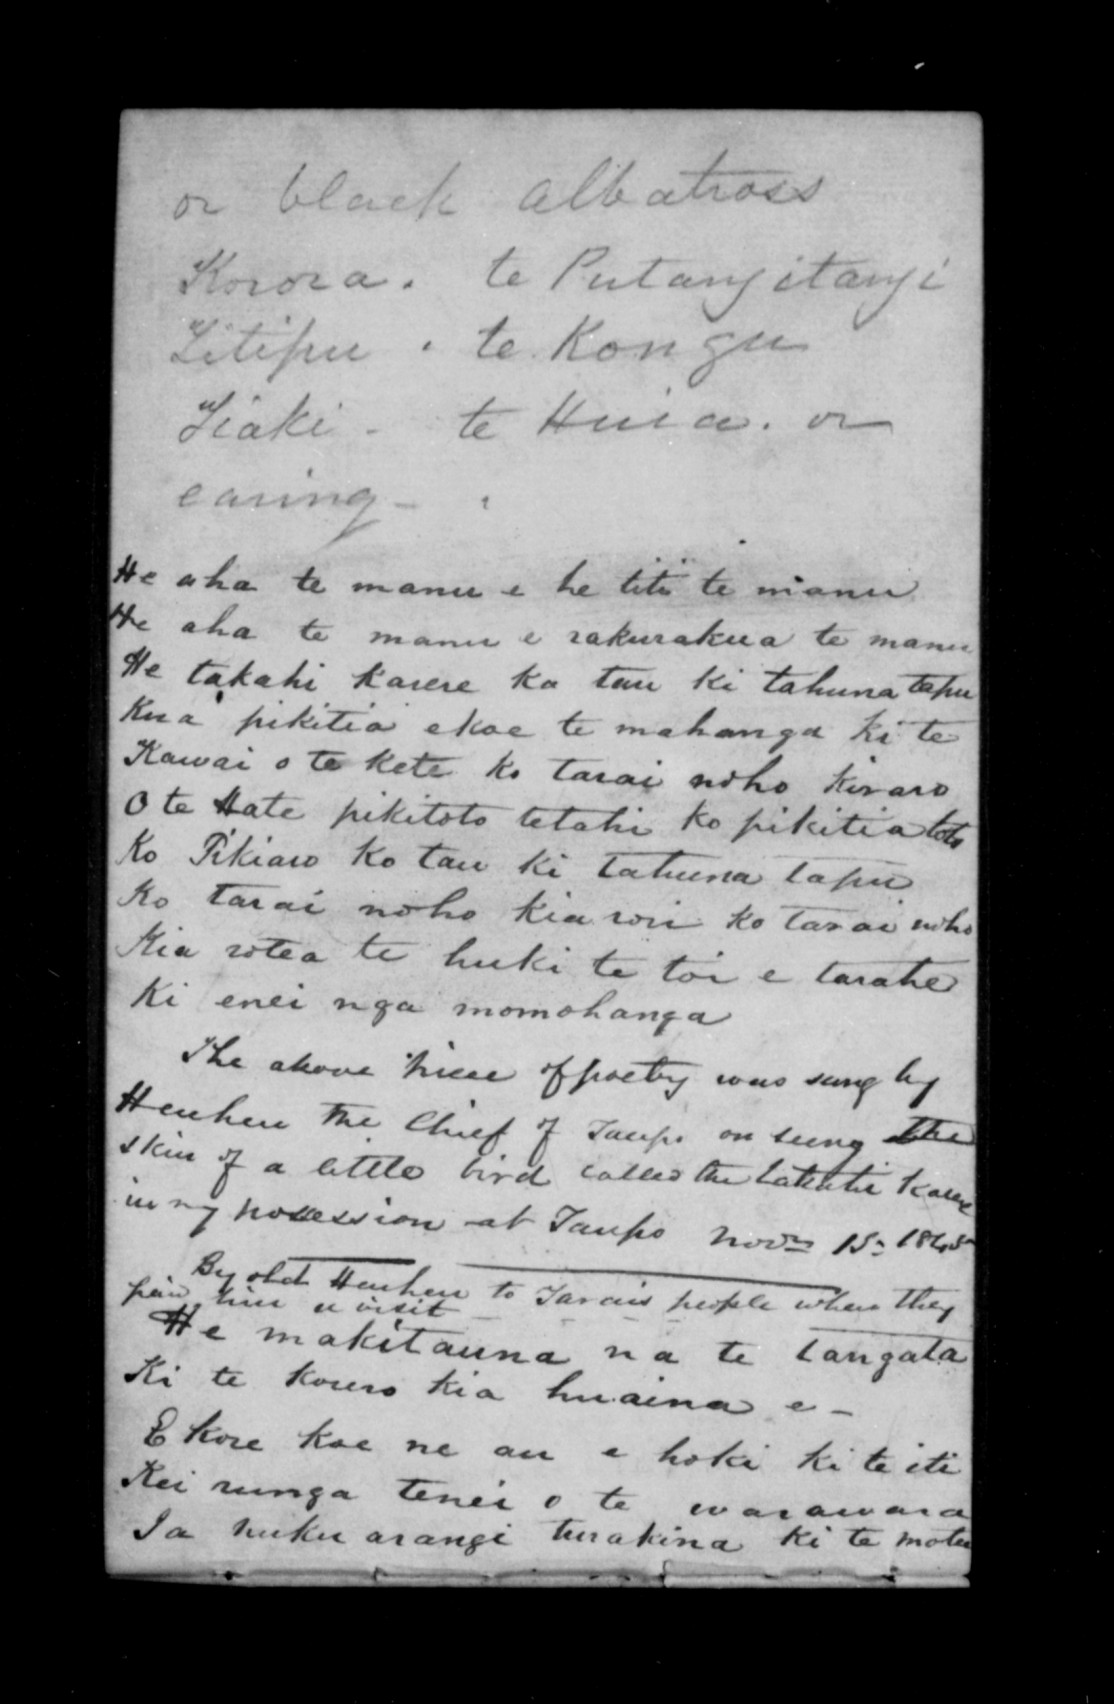 or black albatross
Korora. te Putangitangi
Titipu. te Kongu
Tiaki - te Huia. or
earing -
He aha te manu e he titi te manu
He aha te manu e rakurakua te manu
He takahi karere ka tau ki tahuna tapu
Kua pikitia ekoe te mahanga ki te
Kawai o te kete ko tarai noho kiraro
O te Hate pikitoto tetahi ko pikitia toto
Ko Pikiaro ko tau ki tahuna tapu
Ko tarai noho kia rori ko tarai noho
Kia rotea te huki te toi e tarahe
Ki enei nga momohanga
The above piece of poetry was sung by
Heuheu the Chief of Taupo on seeing the
skin of a little bird called the takahi karere
in my possession at Taupo Novr 15 1845
By old Heuheu to Tarais people when they
paid him a visit
He makitauna na te tangata
Ki te korero kia huaina e -
E kore koe ne au e hoki ki te iti
Kei runga tenei o te warawara
Ia nuku arangi turakina ki te motu